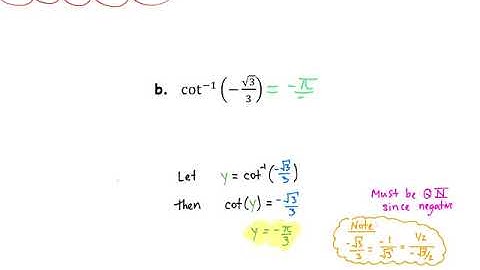 b. cot⁻¹(-√3/3) = -π
Let y = cot⁻¹(-√3/3)
then cot(y) = -√3/3
y = -π/3
Must be Q IV
since negative
Note
-√3/3 = -1/√3 = 1/2/-√3/2